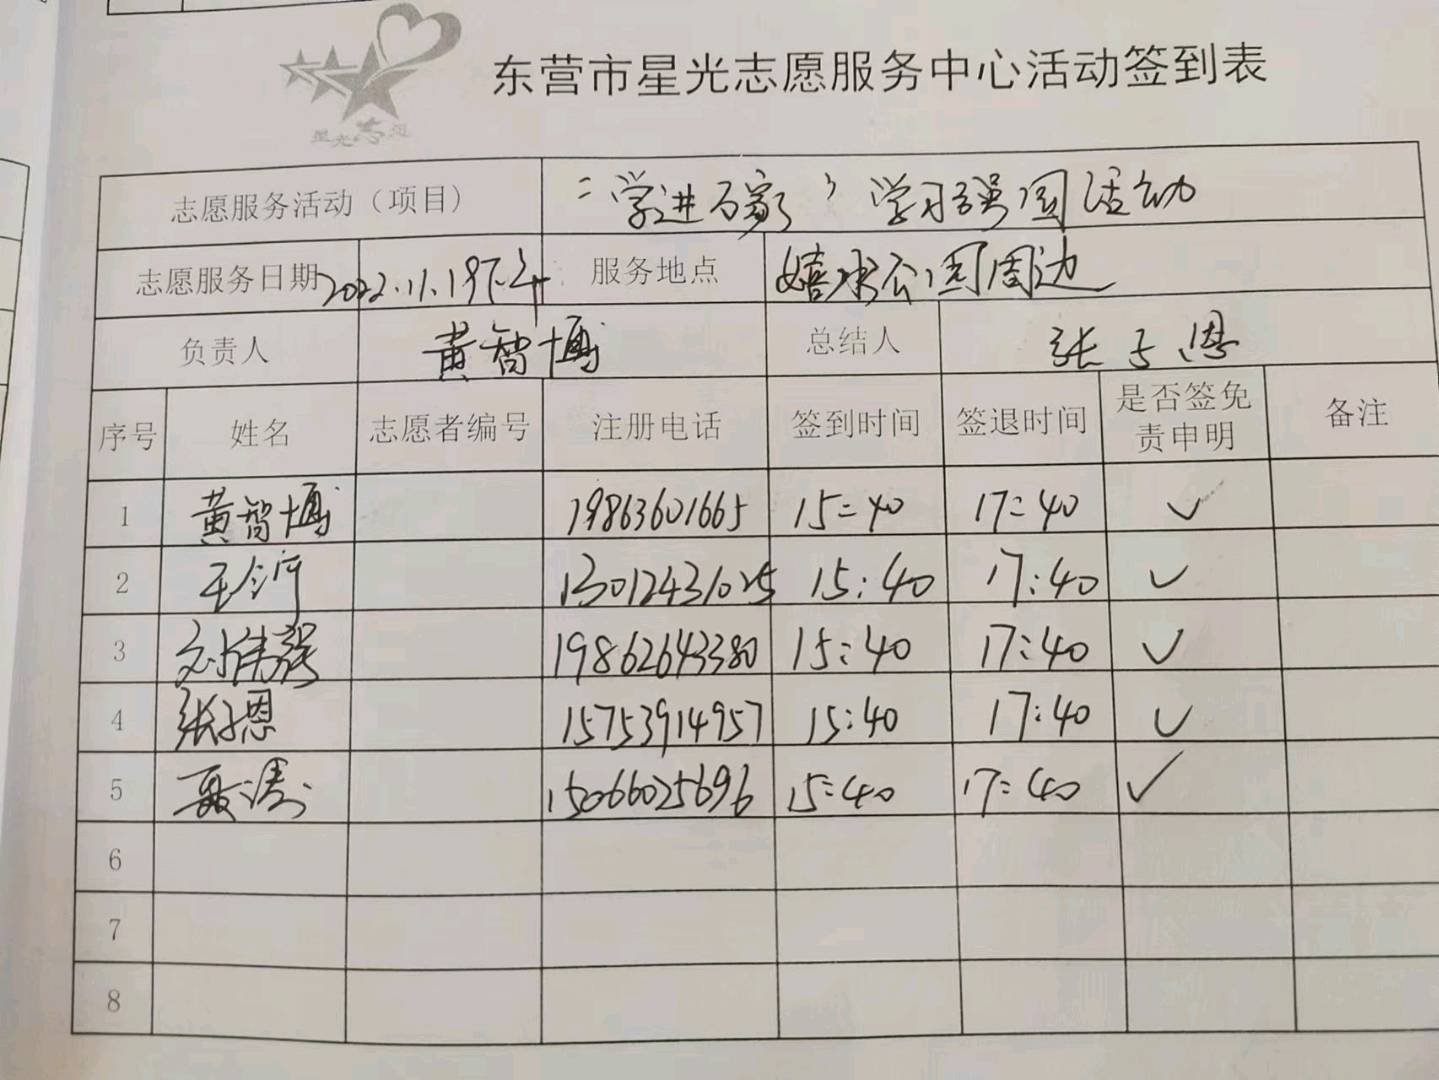 星光志愿
东营市星光志愿服务中心活动签到表
志愿服务活动（项目） “学进百家”学习强国活动
志愿服务日期 2022.11.19下午 服务地点 嬉水公园周边
负责人 黄智博 总结人 张子恩
序号 姓名 志愿者编号 注册电话 签到时间 签退时间 是否签免责申明 备注
1 黄智博 19863601665 15:40 17:40 ✓
2 王 13012431025 15:40 17:40 ✓
3 刘伟 19862643380 15:40 17:40 ✓
4 张子恩 15753914957 15:40 17:40 ✓
5 聂涛 15066025696 15:40 17:40 ✓
6
7
8